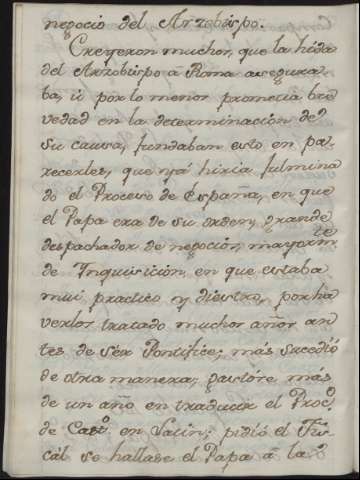 negocio del Arzobispo.
Creyeron muchos, que la hida
del Arzobispo à Roma asegura-
ba, ù por lo menos prometia bre
vedad en la determinacion de
su causa, fundaban esto en pa-
recerles, que yà hiria fulmina
do el Proceso de España, en que
el Papa era de su orden, grande
despachador de negocios, mayormte
de Inquisicion, en que estaba
mui practico y diestro, por ha
verlos tratado muchos años an
tes de sér Pontifice; más sucedió
de otra manera, gastóse más
de un año en traducir el Proco.
de Casto. en Latin; pidió el Fis-
cál se hallase el Papa à la